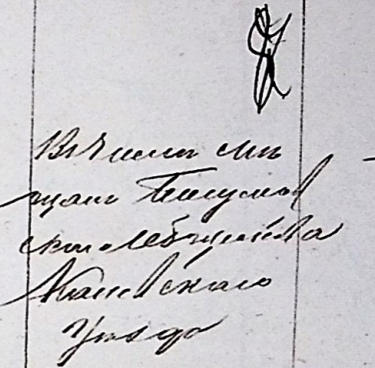 Въ числѣ мѣ
щанъ Богуслав
скаго общества
Каневскаго
уѣзда